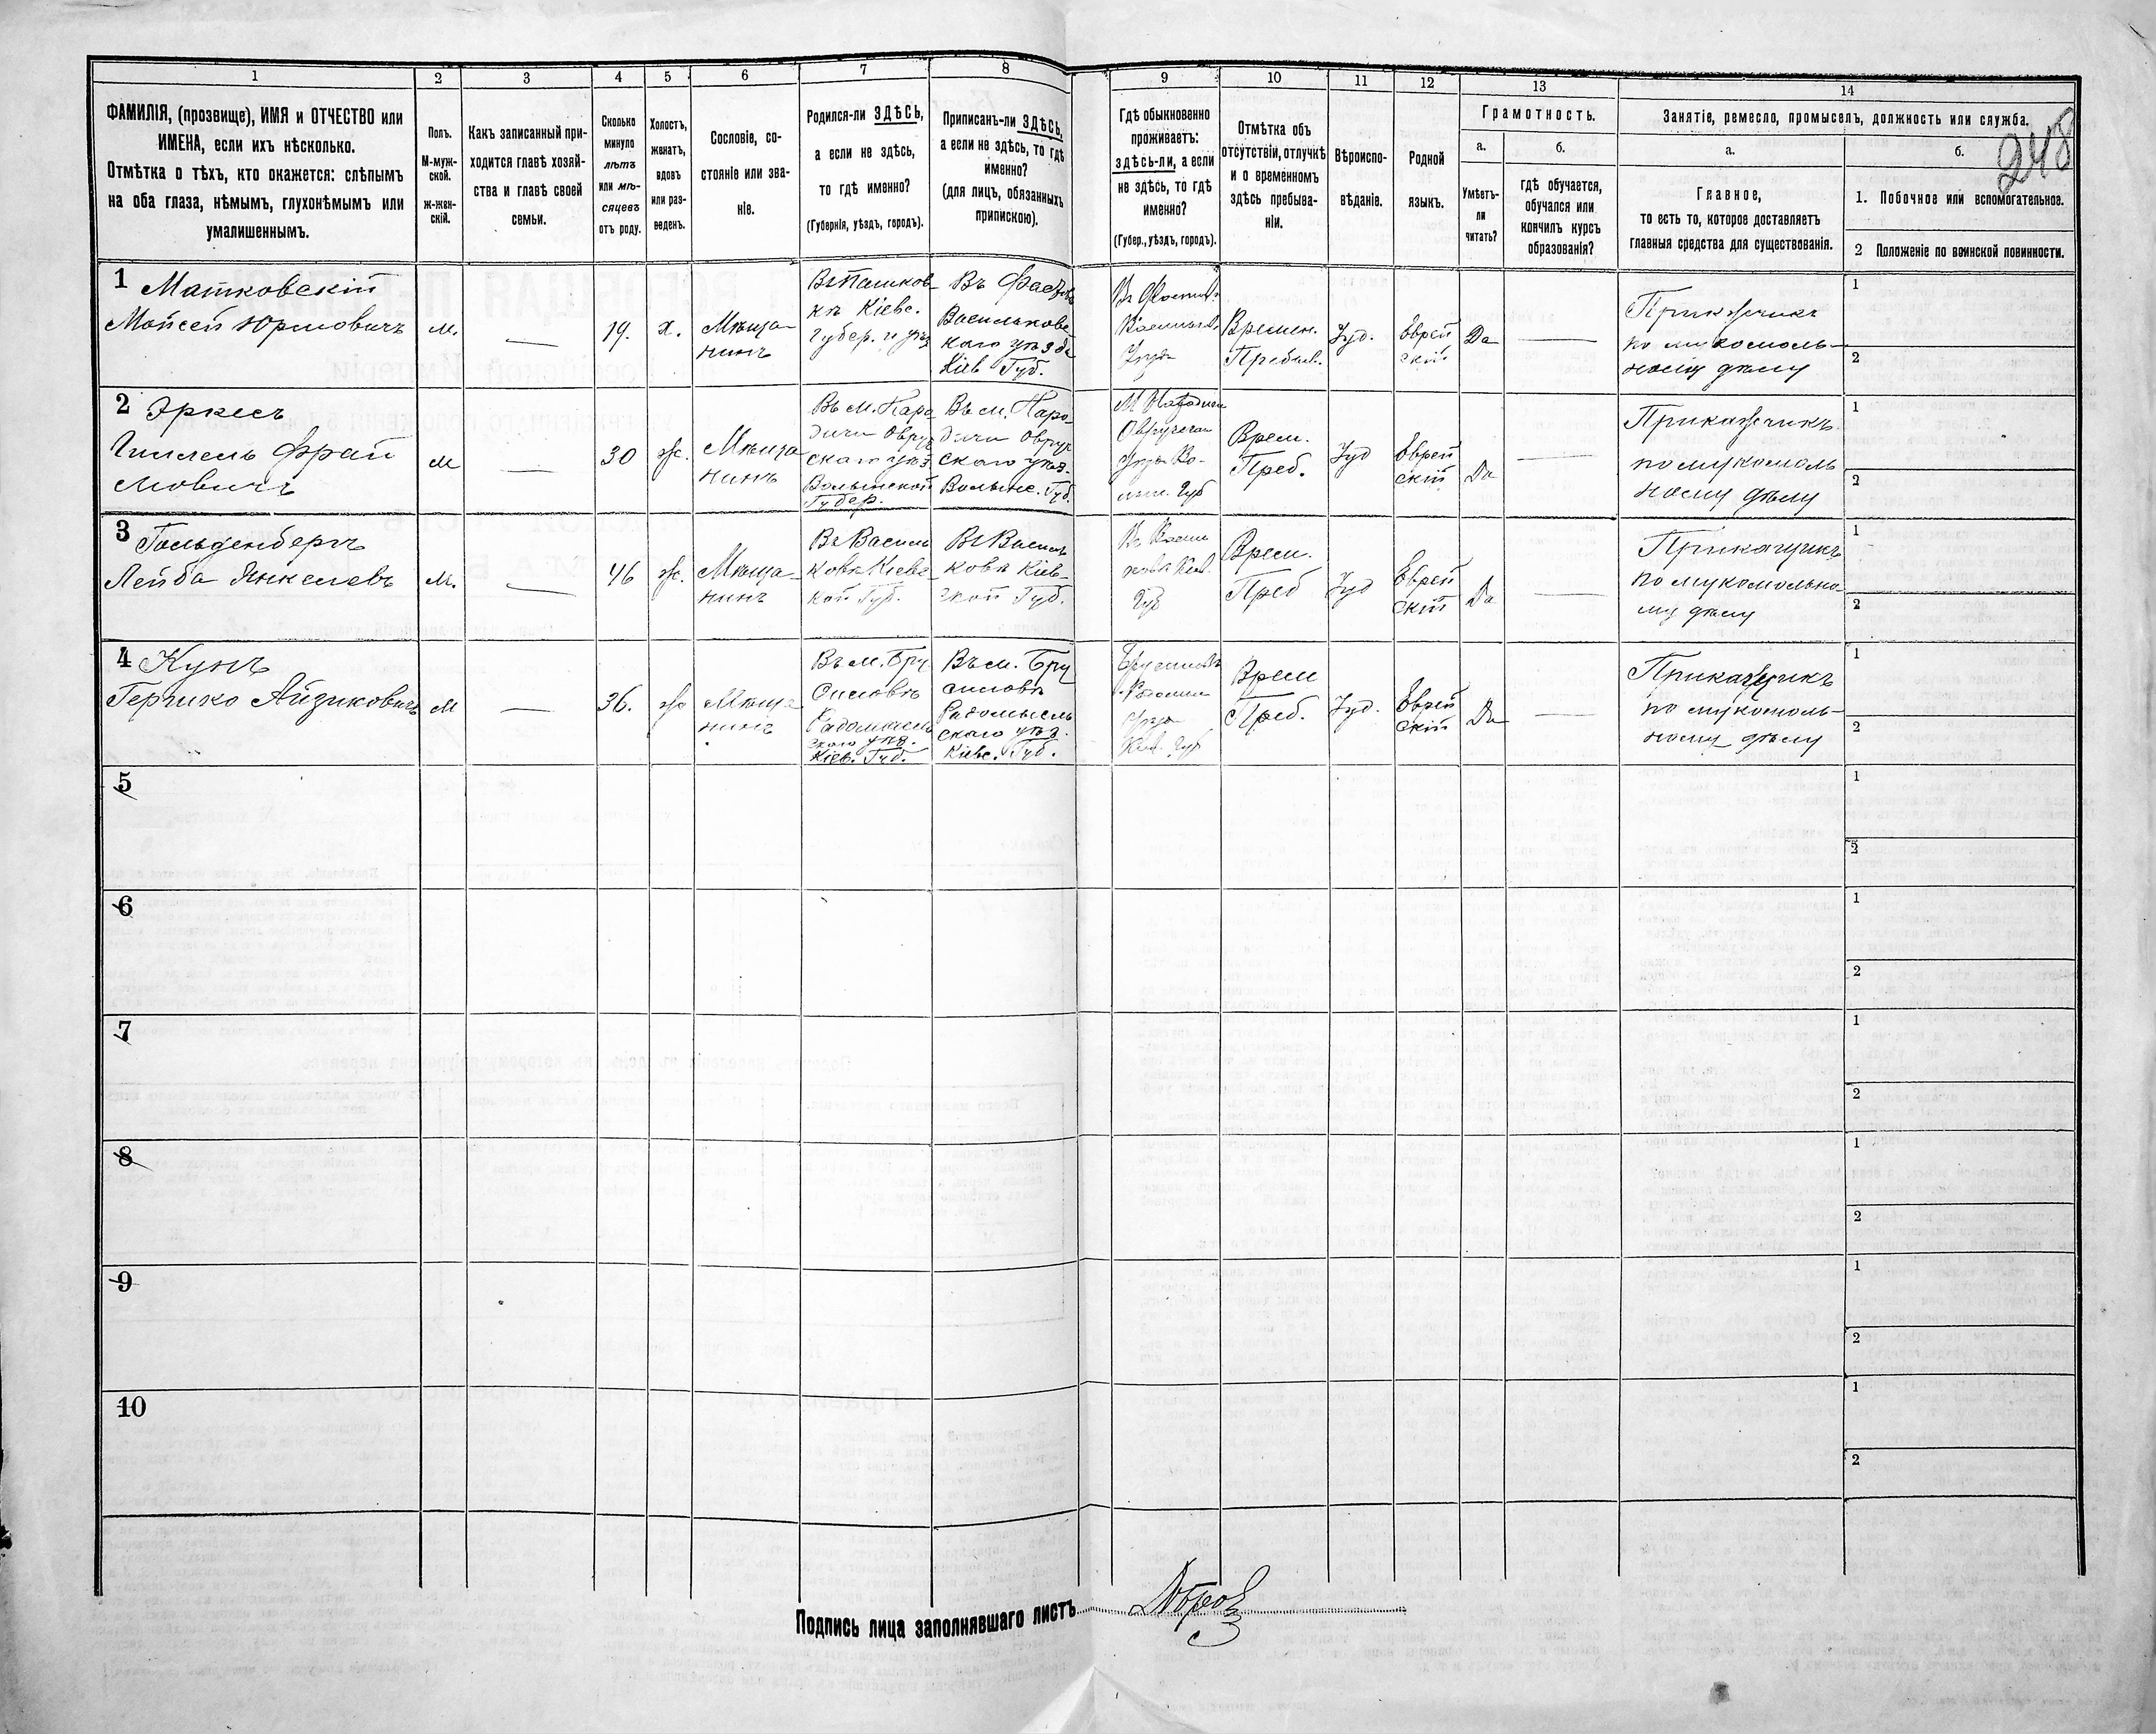 1 2 3 4 5 6 7 8 9 10 11 12 13 14
ФАМИЛІЯ, (прозвище), ИМЯ и ОТЧЕСТВО или
ИМЕНА, если ихъ нѣсколько.
Отмѣтка о тѣхъ, кто окажется: слѣпымъ
на оба глаза, нѣмымъ, глухонѣмымъ или
умалишеннымъ.
Полъ.
М-муж-
ской.
ж-жен-
скій.
Какъ записанный при-
ходится главѣ хозяй-
ства и главѣ своей
семьи.
Сколько
минуло
лѣтъ
или мѣ-
сяцевъ
отъ роду.
Холостъ,
женатъ,
вдовъ
или раз-
веденъ.
Сословіе, со-
стояніе или зва-
ніе.
Родился-ли ЗДѢСЬ,
а если не здѣсь,
то гдѣ именно?
(Губернія, уѣздъ, городъ).
Приписанъ-ли ЗДѢСЬ,
а если не здѣсь, то гдѣ
именно?
(для лицъ, обязанныхъ
припискою).
Гдѣ обыкновенно
проживаетъ:
здѣсь-ли, а если
не здѣсь, то гдѣ
именно?
(Губер., уѣздъ, городъ).
Отмѣтка объ
отсутствіи, отлучкѣ
и о временномъ
здѣсь пребыва-
ніи.
Вѣроиспо-
вѣданіе.
Родной
языкъ.
Грамотность.
а.
Умѣетъ-
ли
читать?
б.
гдѣ обучается,
обучался или
кончилъ курсъ
образованія?
Занятіе, ремесло, промыселъ, должность или служба.
248
а.
Главное,
то есть то, которое доставляетъ
главныя средства для существованія.
б.
1. Побочное или вспомогательное.
2 Положеніе по воинской повинности.
1 Матковскій
Мойсей Юрмовичъ
м.
19.
х.
Мѣща-
нинъ
Въ Пашков-
кѣ Кіевс.
Губер. и уѣз
Въ Фастовѣ
Васильковс
каго уѣзда
Кіев Губ.
Времен.
Пребыв.
Іуд.
Еврей
скій
Да
Приказчикъ
по мукомоль-
ному дѣлу
1
2
2 Эркесъ
м
30
ж.
Мѣща
нинъ
Въ м. Наро
дичи Овруч
скаго уѣз.
Волынской
Губер.
Въ м. Наро
дичи Овруч
скаго уѣз.
Волынс. Губ.
Врем.
Преб.
Іуд
Еврей
скій
Да
Приказчикъ
по мукомоль
ному дѣлу
1
2
3 Гольденбергъ
Лейба Янкелевъ
м.
46
ж.
Мѣща-
нинъ
Въ Василь
ковѣ Кіевс-
кой Губ.
Въ Василь
ковѣ Кіев-
ской Губ.
Врем.
Преб
Іуд
Еврей
скій
Да
Прикащикъ
по мукомольно-
му дѣлу
1
2
4 Кунъ
Гершко Айзиковичъ
м
36.
ж
Мѣща
нинъ
Въ м. Бру
силовѣ
Радомысль
скаго уѣз.
Кіев. Губ.
Въ м. Бру
силовѣ
Радомысль
скаго уѣз.
Кіевс. Губ.
Врем
Преб.
Іуд.
Еврей
скій
Да
Приказчикъ
по мукомоль-
ному дѣлу
1
2
5
1
2
6
1
2
7
1
2
8
1
2
9
1
2
10
1
2
Подпись лица заполнявшаго листъ